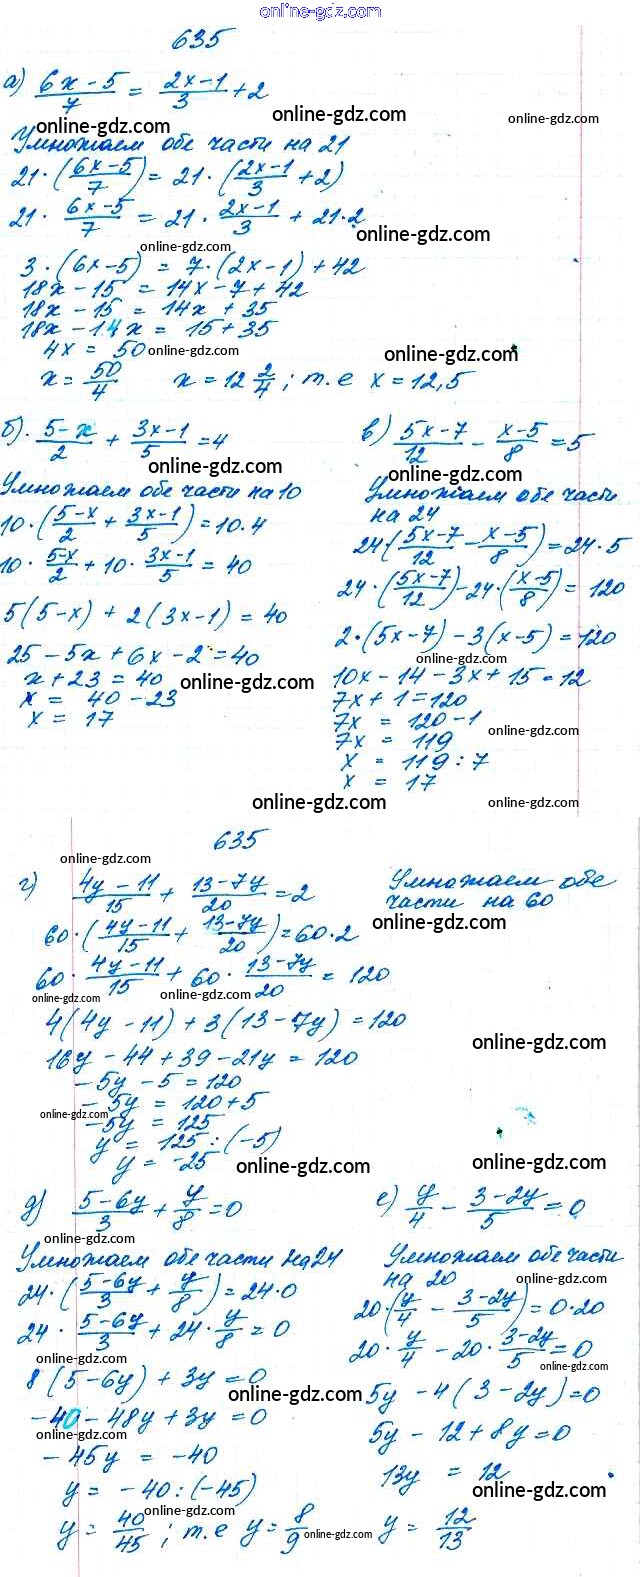 online-gdz.com
635
а) (6x-5)/7 = (2x-1)/3 + 2
online-gdz.com
online-gdz.com
Умножаем обе части на 21
21·((6x-5)/7) = 21·((2x-1)/3 + 2)
21·(6x-5)/7 = 21·(2x-1)/3 + 21·2
online-gdz.com
online-gdz.com
3·(6x-5) = 7·(2x-1) + 42
18x - 15 = 14x - 7 + 42
18x - 15 = 14x + 35
18x - 14x = 15 + 35
4x = 50
online-gdz.com
online-gdz.com
x = 50/4 x = 12 2/4 ; т.е x = 12,5
б). (5-x)/2 + (3x-1)/5 = 4
online-gdz.com
Умножаем обе части на 10
10·((5-x)/2 + (3x-1)/5) = 10·4
10·(5-x)/2 + 10·(3x-1)/5 = 40
5(5-x) + 2(3x-1) = 40
25 - 5x + 6x - 2 = 40
x + 23 = 40
online-gdz.com
x = 40 - 23
x = 17
в) (5x-7)/12 - (x-5)/8 = 5
online-gdz.com
Умножаем обе части
на 24
24((5x-7)/12 - (x-5)/8) = 24·5
24·((5x-7)/12) - 24·((x-5)/8) = 120
2·(5x-7) - 3(x-5) = 120
online-gdz.com
10x - 14 - 3x + 15 = 12
7x + 1 = 120
7x = 120 - 1
online-gdz.com
7x = 119
x = 119 : 7
x = 17
online-gdz.com
online-gdz.com
635
online-gdz.com
г) (4y-11)/15 + (13-7y)/20 = 2
Умножаем обе
части на 60
online-gdz.com
60·((4y-11)/15 + (13-7y)/20) = 60·2
60·(4y-11)/15 + 60·(13-7y)/20 = 120
online-gdz.com
online-gdz.com
4(4y-11) + 3(13-7y) = 120
online-gdz.com
16y - 44 + 39 - 21y = 120
-5y - 5 = 120
-5y = 120 + 5
online-gdz.com
-5y = 125
y = 125 : (-5)
y = -25
online-gdz.com
online-gdz.com
д) (5-6y)/3 + y/8 = 0
online-gdz.com
Умножаем обе части на 24
24·((5-6y)/3 + y/8) = 24·0
24·(5-6y)/3 + 24·y/8 = 0
online-gdz.com
8(5-6y) + 3y = 0
online-gdz.com
-40 - 48y + 3y = 0
online-gdz.com
-45y = -40
y = -40 : (-45)
online-gdz.com
y = 40/45 ; т.е y = 8/9
online-gdz.com
е) y/4 - (3-2y)/5 = 0
Умножаем обе части
на 20
online-gdz.com
20·(y/4 - (3-2y)/5) = 0·20
20·y/4 - 20·(3-2y)/5 = 0
online-gdz.com
5y - 4(3-2y) = 0
5y - 12 + 8y = 0
13y = 12
online-gdz.com
y = 12/13